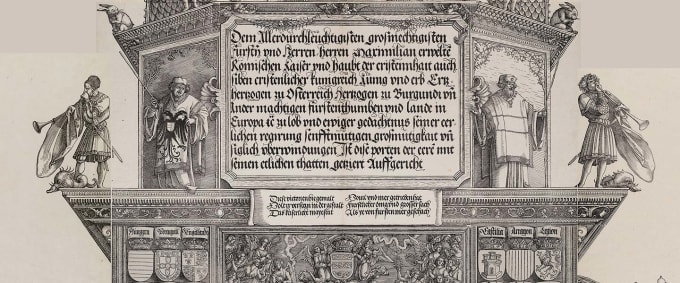 Dem Allerdurchleuchtigisten grosmechtigisten
Fursten vnd Herren herren Maximilian erwelte
Romischen Kaiser vnd haubt der cristennhait auch
siben cristenlicher kunigreich kunig vnd erb Ertz-
hertzogen zu Osterreich Hertzogen zu Burgundi vñ
Ander mechtigen furstenthumben vnd lande in
Europa ꝛc zu lob vnd ewiger gedechtnus seiner eer-
lichen regirung senfftmutigen grosmutigkait vñ
siglich vberwindungen Ist dise porten der eeren mit
seinen etlichen thatten getziert Auffgericht
Diese vier
Das
Als ye von fursten wier geschach
Hungern Portugall Engelland
Castilia Aragon Legion